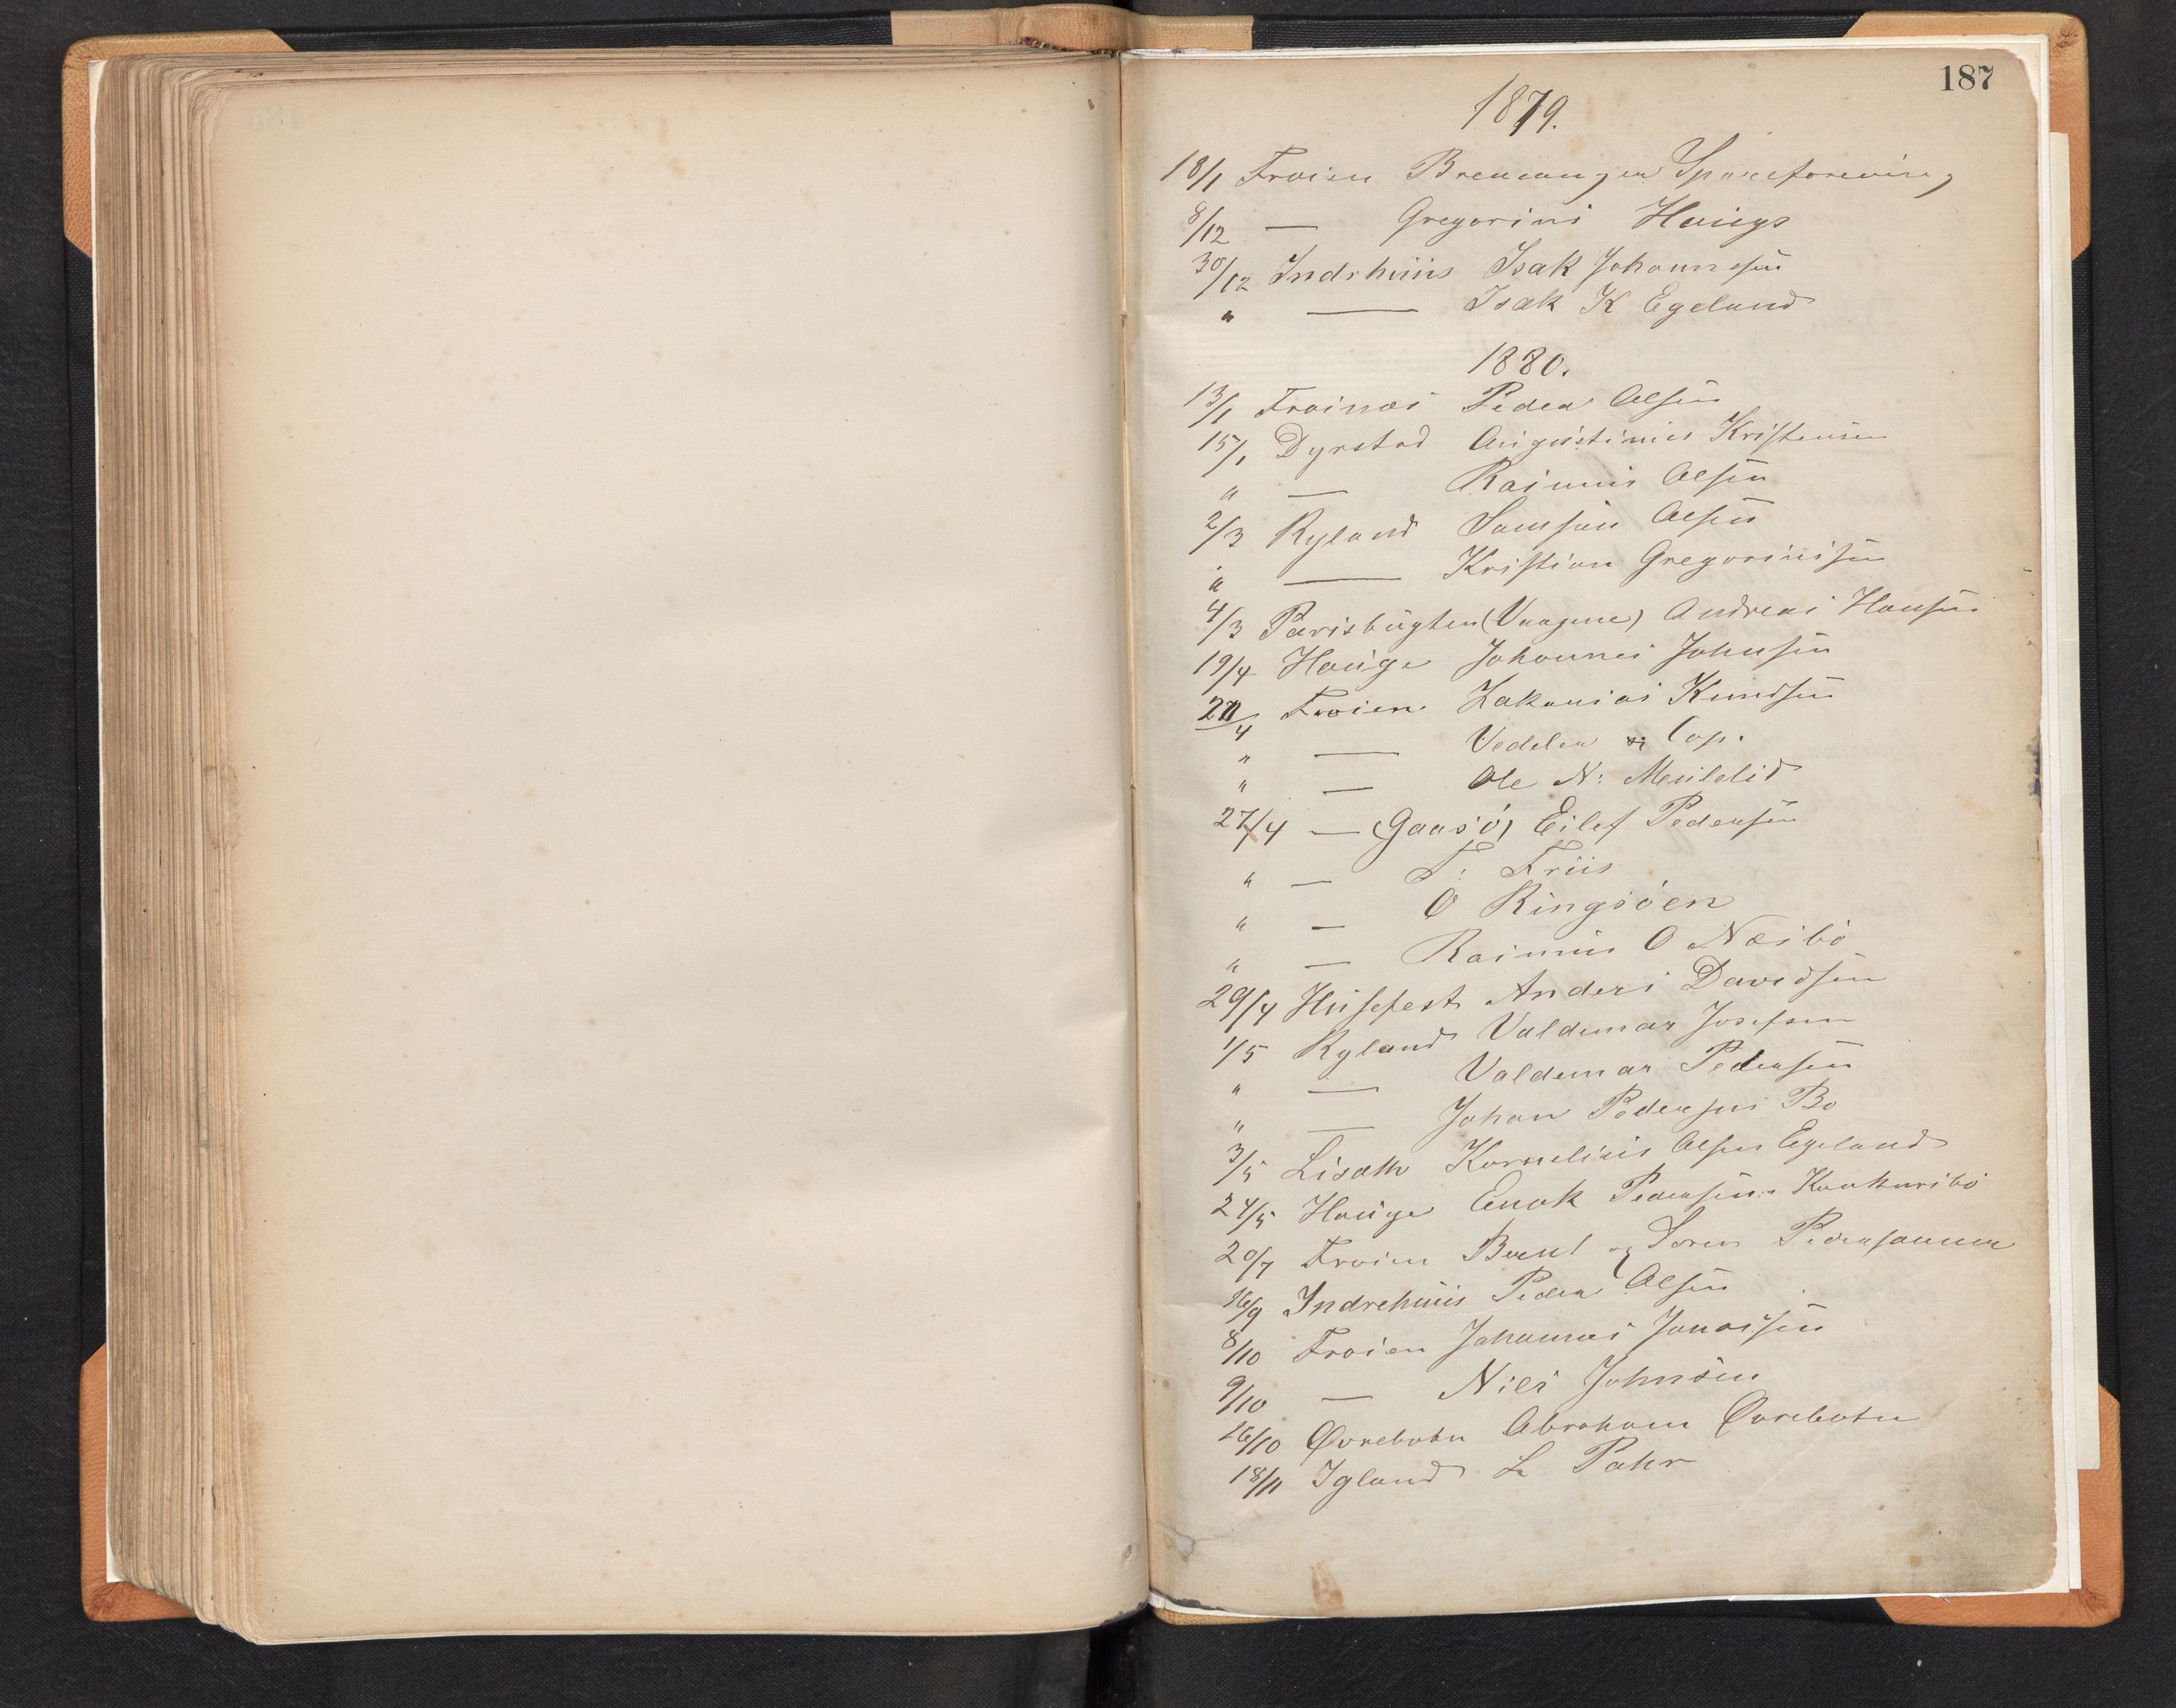 187
1879.
18/1 Froien Bremanger Spareforening
8/12 — Gregorius Haugs
30/12 Indrhuus Isak Johannesen
" — Isak K Egeland
1880.
13/1 Froinæs Peder Olsen
15/1 Dyrstad Augustinius Kristensen
" — Rasmus Olsen
2/3 Ryland Samson Olsen
" — Kristian Gregoriussen
4/3 Parisbugten (Vaagene) Andreas Hansen
19/4 Hauge Johannes Johnsen
21/4 Froien Zakarias Knudsen
" — Vedeler & Cop.
" — Ole N: Meulelid
27/4 — (Gaasö) Eilef Pedersen
" — F: Friis
" — O Ringsöen
" — Rasmus O Næsbö
29/4 Husefest Anders Davidsen
1/5 Ryland Valdemar Josefsen
" — Valdemar Pedersen
" — Johan Pedersen Bo
3/5 Lisæth Kornelius Olsen Egeland
24/5 Hauge Enok Pedersen
20/7 Froien Bernt og Soren Pedersønner
16/9 Indrehuus Peder Olsen
8/10 Froien Johannes Jonassen
9/10 — Nils Johnsen
16/10 Øvrebotn Abraham Øvrebotn
18/11 Igland L Pahr